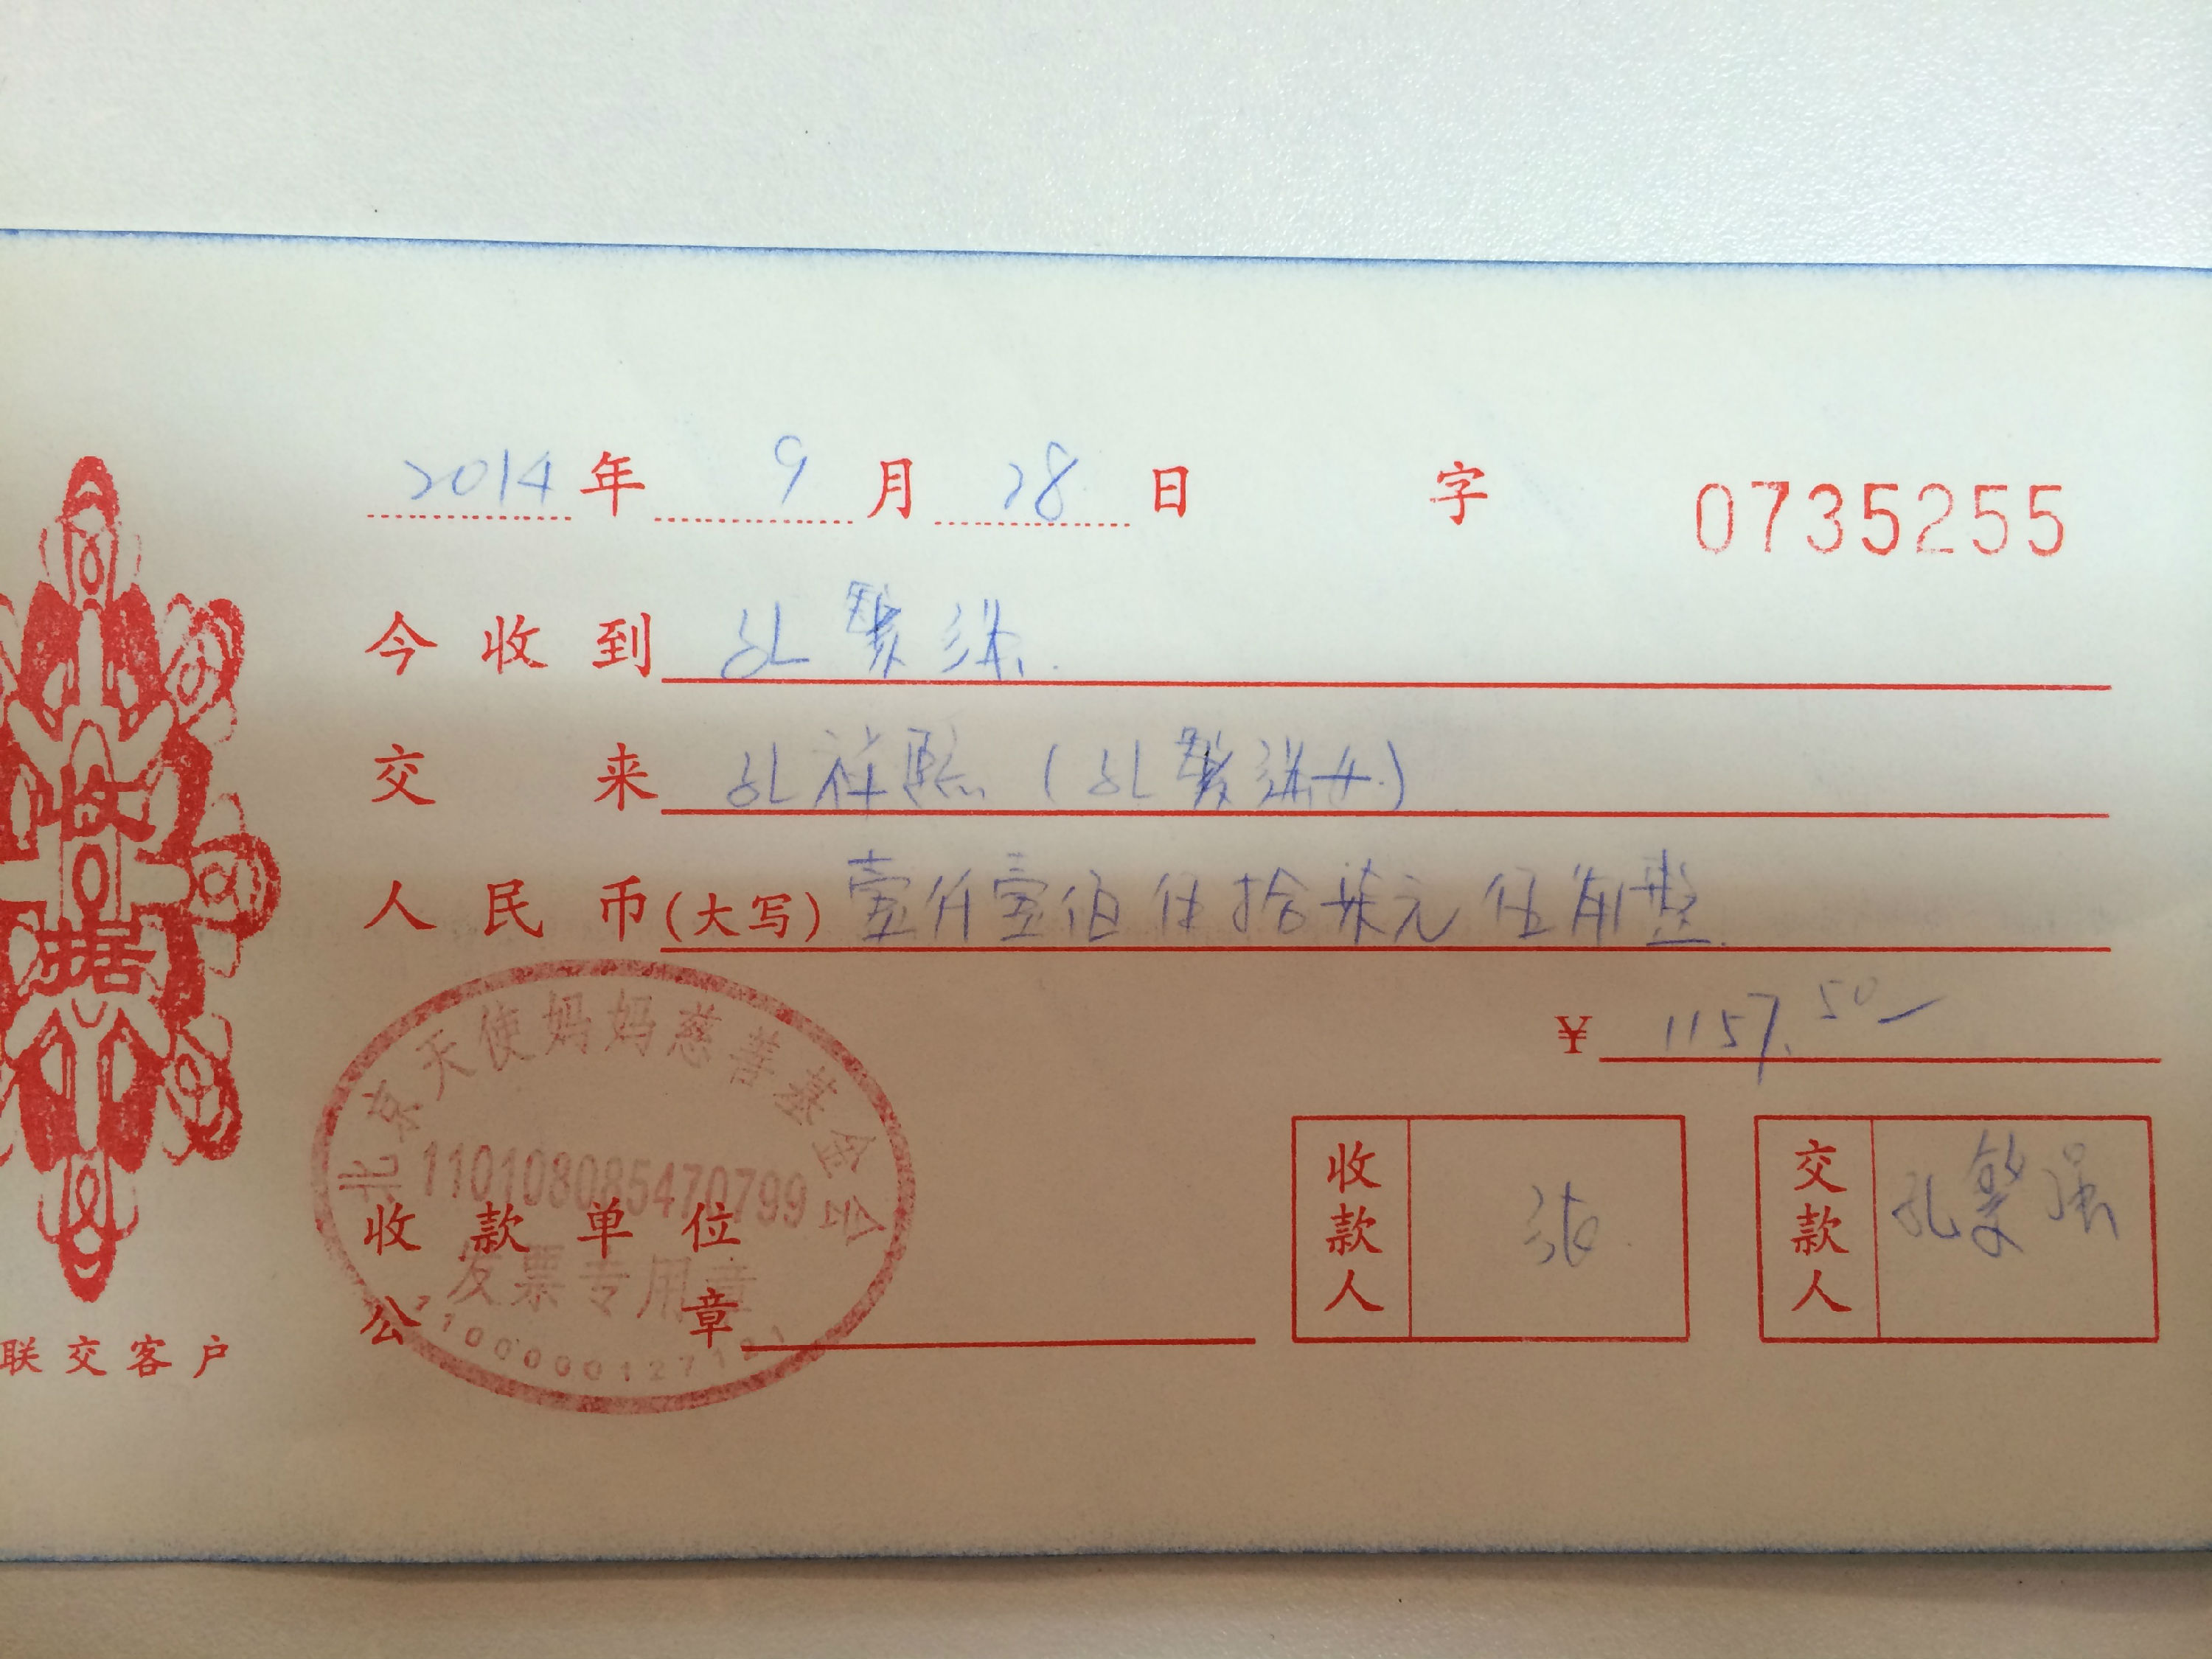 2014 年 9 月 28 日 字 0735255
今收到 孔繁
交来 孔祥熙 (孔繁 女)
人民币(大写) 壹仟壹佰伍拾柒元伍角整
¥ 1157.50
北京天使妈妈慈善基金会
110108085470799
发票专用章
收款单位
公章
收款人 张
交款人 孔繁强
收据
联交客户